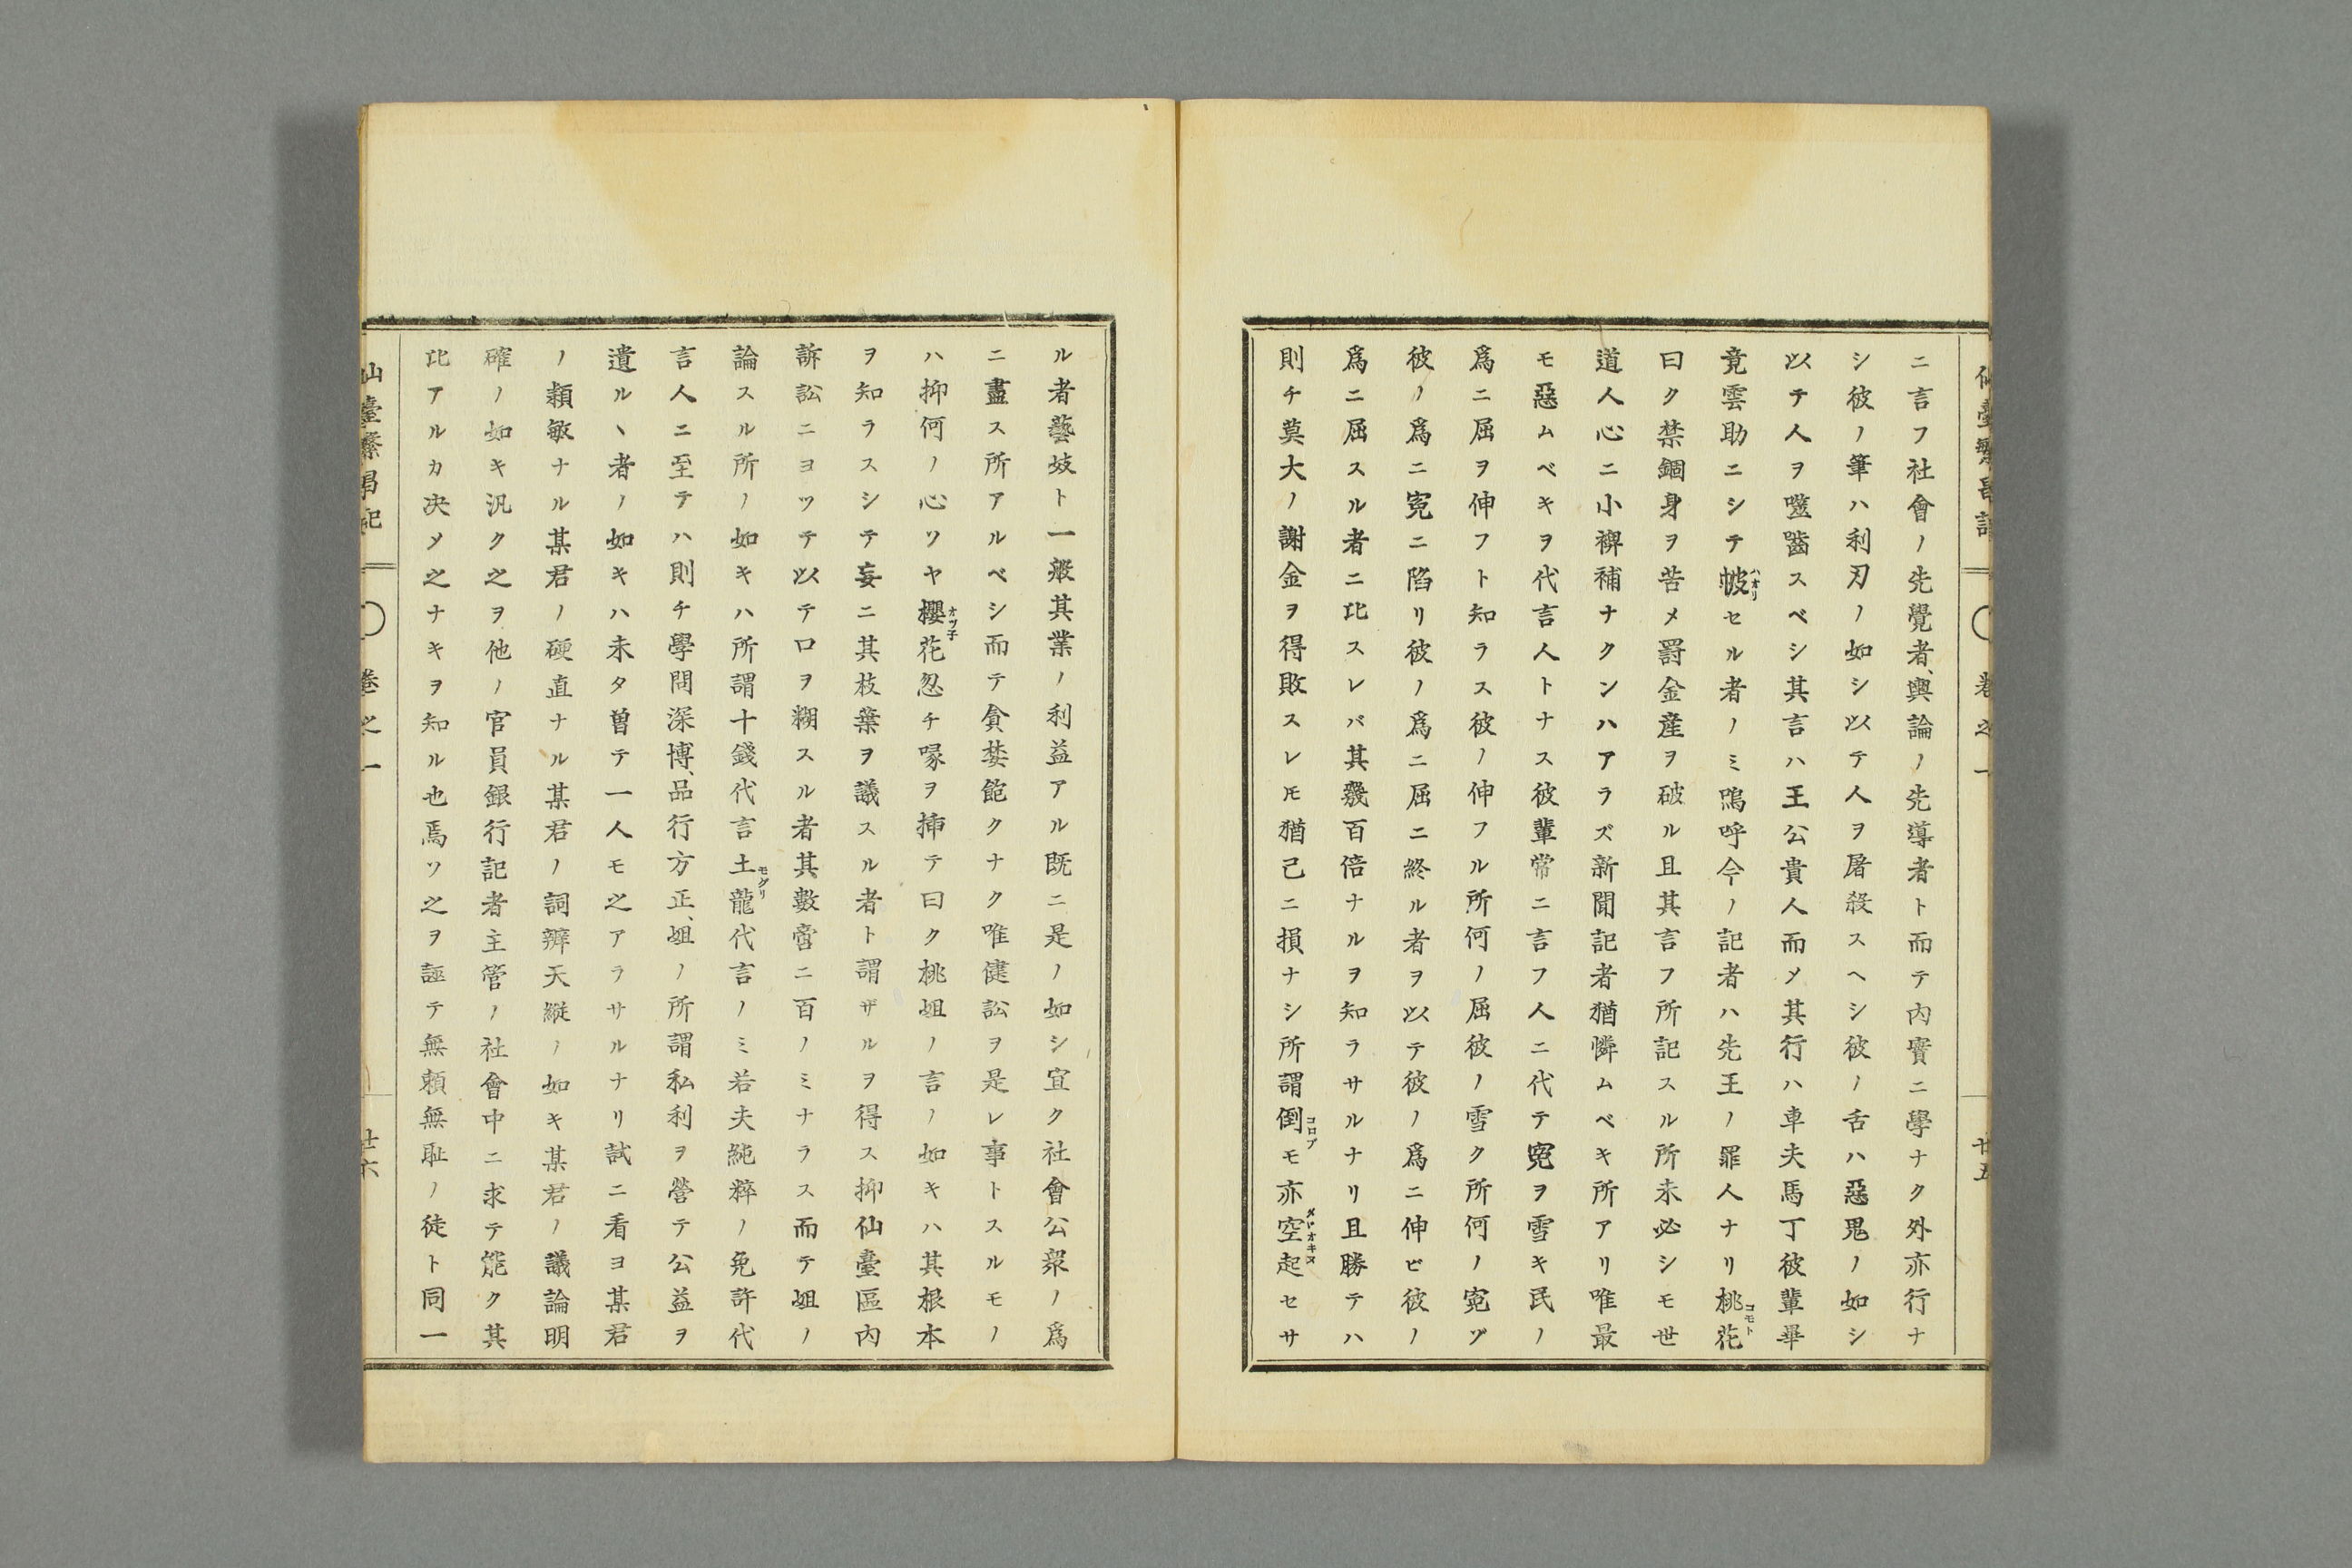 仙臺繁昌記 卷之一 廿五
ニ言フ社會ノ先覺者、輿論ノ先導者ト而テ内實ニ學ナク外亦行ナ
シ彼ノ筆ハ利刃ノ如シ以テ人ヲ屠殺スヘシ彼ノ舌ハ惡鬼ノ如シ
以テ人ヲ噬嚙スベシ其言ハ王公貴人而〆其行ハ車夫馬丁彼輩畢
竟雲助ニシテ帔セル者ノミ嗚呼今ノ記者ハ先王ノ罪人ナリ桃花
ハオリ
コモト
曰ク禁錮身ヲ苦メ罸金産ヲ破ル且其言フ所記スル所未必シモ世
道人心ニ小裨補ナクンハアラズ新聞記者猶憐ムベキ所アリ唯最
モ惡ムベキヲ代言人トナス彼輩常ニ言フ人ニ代テ寃ヲ雪キ民ノ
爲ニ屈ヲ伸フト知ラス彼ノ伸フル所何ノ屈彼ノ雪ク所何ノ寃ヅ
彼ノ爲ニ寃ニ陷リ彼ノ爲ニ屈ニ終ル者ヲ以テ彼ノ爲ニ伸ビ彼ノ
爲ニ屈スル者ニ比スレバ其幾百倍ナルヲ知ラサルナリ且勝テハ
則チ莫大ノ謝金ヲ得敗スレ𪜈猶己ニ損ナシ所謂倒モ亦空起セサ
コロブ
ル者藝妓ト一般其業ノ利益アル既ニ是ノ如シ宜ク社會公衆ノ爲
ニ盡ス所アルベシ而テ貪婪飽クナク唯健訟ヲ是レ事トスルモノ
ハ抑何ノ心ソヤ櫻花忽チ喙ヲ挿テ曰ク桃姐ノ言ノ如キハ其根本
オツ子
ヲ知ラスシテ妄ニ其枝葉ヲ議スル者ト謂ザルヲ得ス抑仙臺區内
訴訟ニヨツテ以テ口ヲ糊スル者其數啻ニ百ノミナラス而テ姐ノ
論スル所ノ如キハ所謂十錢代言土龍代言ノミ若夫純粹ノ免許代
モグリ
言人ニ至テハ則チ學問深博、品行方正、姐ノ所謂私利ヲ營テ公益ヲ
遺ルヽ者ノ如キハ未タ曽テ一人モ之アラサルナリ試ニ看ヨ某君
ノ頴敏ナル某君ノ硬直ナル某君ノ詞辯天縦ノ如キ某君ノ議論明
確ノ如キ汎ク之ヲ他ノ官員銀行記者主管ノ社會中ニ求テ能ク其
比アルカ决〆之ナキヲ知ル也焉ソ之ヲ誣テ無頼無耻ノ徒ト同一
仙臺繁昌記 卷之一 廿六